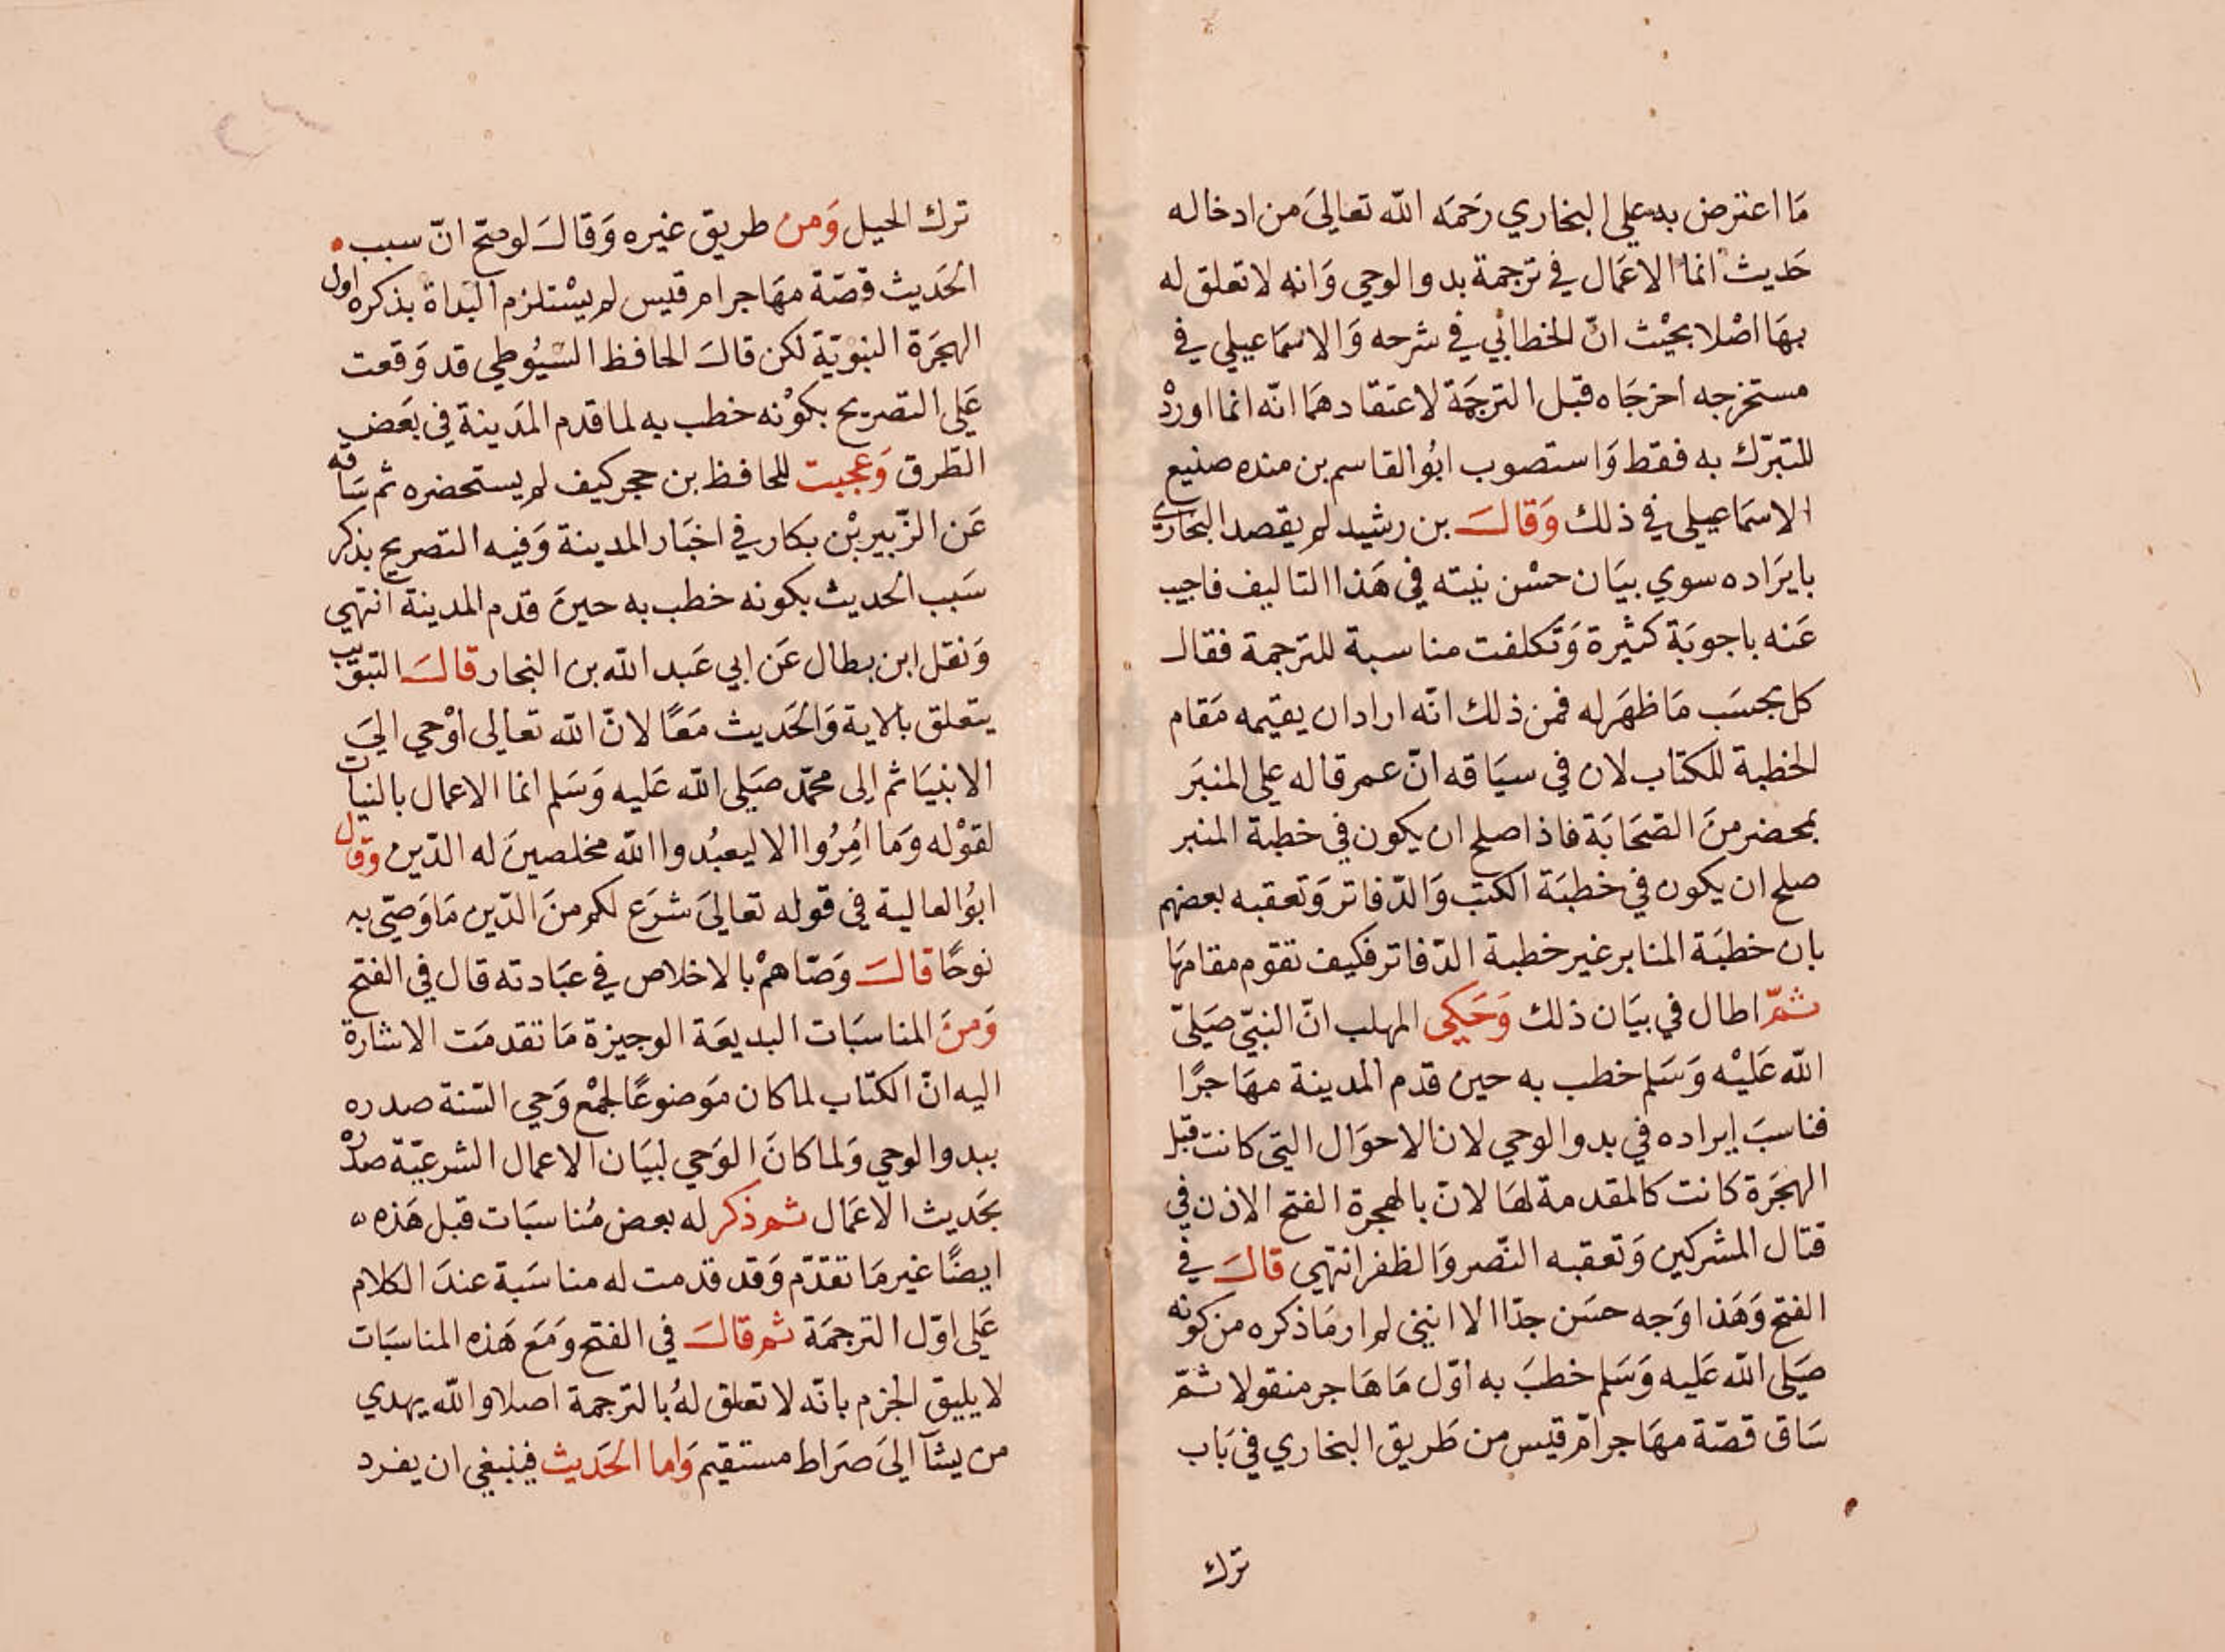 مَا اعترض به علي البخاري رَحمَه الله تعاليَ من ادخاله
حَديث انما الاعمَال في ترجمة بدو الوحي وَانه لا تعلق له
بهَا اصْلا بحيْث انّ الخطابي في شرحه وَالاسمَاعيلي في
مستخرجه اخرجَاه قبل الترجمَة لاعتقادهمَا انّه انما اوردْ
للتبرّك به فقط وَاستصوب ابُو القاسم بن منده صنيع
الاسمَاعيلي في ذلك وَقالَ بن رشيد لم يقصد البخاري
بايرَاده سوي بيَان حسْن نيته في هَذا التاليف فاجيب
عَنه باجوبَة كثيرة وَتكلفت مناسبة للترجمة فقال
كل بحسَب مَا ظهَر له فمن ذلك انّه اراد ان يقيمه مَقام
الخطبة للكتاب لان في سيَاقه انّ عمر قاله علي المنبَر
بمحضر منَ الصّحَابَة فاذا صلح ان يكون في خطبة المنبر
صلح ان يكون في خطبَة الكتب وَالدّفاتر وَتعقبه بعضهم
بان خطبَة المنابر غير خطبة الدّفاتر فكيف تقوم مقامهَا
ثمّ اطال في بيَان ذلك وَحَكي المهلب انّ النبيّ صَليّ
الله عَليْه وَسَلم خطب به حين قدم المدينة مهَاجرًا
فناسبَ إيراده في بدو الوحي لان الاحوَال التي كانت قبل
الهجَرة كانت كالمقدمة لهَا لانّ بالهجرة الفتح الاذن في
قتال المشركين وَتعقبه النّصر وَالظفر انتهي قالَ في
الفتح وَهَذا وَجه حسَن جدّا الا انني لم ار مَا ذكره من كونه
صَلي الله عَليه وَسَلم خطبَ به اوّل مَا هَاجر منقولا ثمّ
سَاق قصّة مهَاجر امّ قيس من طَريق البخاري في بَاب
ترك
ترك الحيل وَمن طريق غيره وَقالَ لو صحّ انّ سبب
الحَديث قصّة مهَاجر ام قيس لم يسْتلزم البَداة بذكره اول
الهجَرة النبوّية لكن قالَ الحافظ السّيُوطي قد وَقعت
عَلي التصريح بكوْنه خطب به لما قدم المَدينة في بعَض
الطّرق وَعجبت للحافظ بن حجر كيف لم يستحضره ثم سَاقه
عَن الزّبير بْن بكار في اخبَار المدينة وَفيه التصريح بذكر
سَبب الحديث بكونه خطب به حينَ قدم المدينة انتهي
وَنقل ابن بطال عَن ابي عَبد الله بن النجار قالَ التبويب
يتعلق بالاية وَالحَديث مَعًا لانّ الله تعالى أوْحي اليَ
الانبيَا ثم إلى محمّد صَلى الله عَليه وَسَلم انما الاعمال بالنيات
لقوْله وَمَا امُرُوا الا ليعبُدوا الله مخلصينَ له الدّين وَقال
ابوُ العالية في قوله تعاليَ شرَع لكم منَ الدّين مَا وَصّي به
نوحًا قالَ وَصّاهمْ بالاخلاص في عبَادته قال في الفتح
وَمنَ المناسبَات البديعَة الوجيزة مَا تقدمَت الاشارة
اليه انّ الكتاب لما كان مَوضوعًا لجمْع وَحي السّنة صدره
ببدو الوحي وَلما كانَ الوَحي لبيَان الاعمال الشرعيّة صدره
بحَديث الاعمَال ثم ذكر له بعض مُناسبَات قبل هَذه
ايضًا غير مَا تقدّم وَقد قدمت له مناسَبة عندَ الكلام
عَلي اوّل الترجمَة ثم قالَ في الفتح وَمَع هَذه المناسبَات
لا يليق الجزم بانّه لا تعلق لهُ بالترجمة اصلا والله يهدي
من يشآ اليَ صَراط مستقيم وَاما الحَديث فينبغي ان يفرد